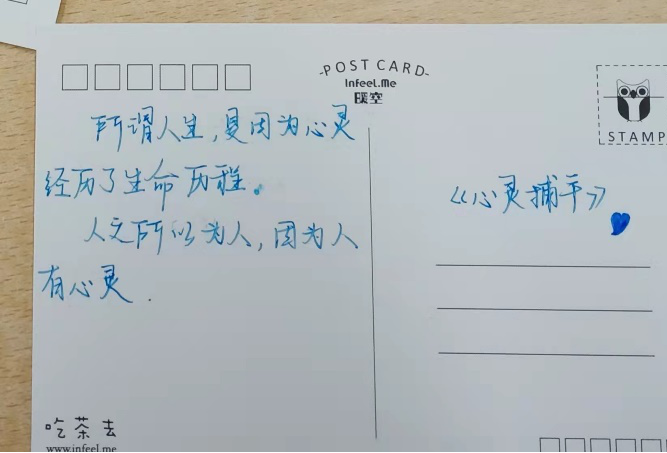 POST CARD
Infeel.Me
暖空
STAMP
所谓人生,是因为心灵
经历了生命历程。
人之所以为人,因为人
有心灵.
《心灵捕手》
吃茶去
www.infeel.me